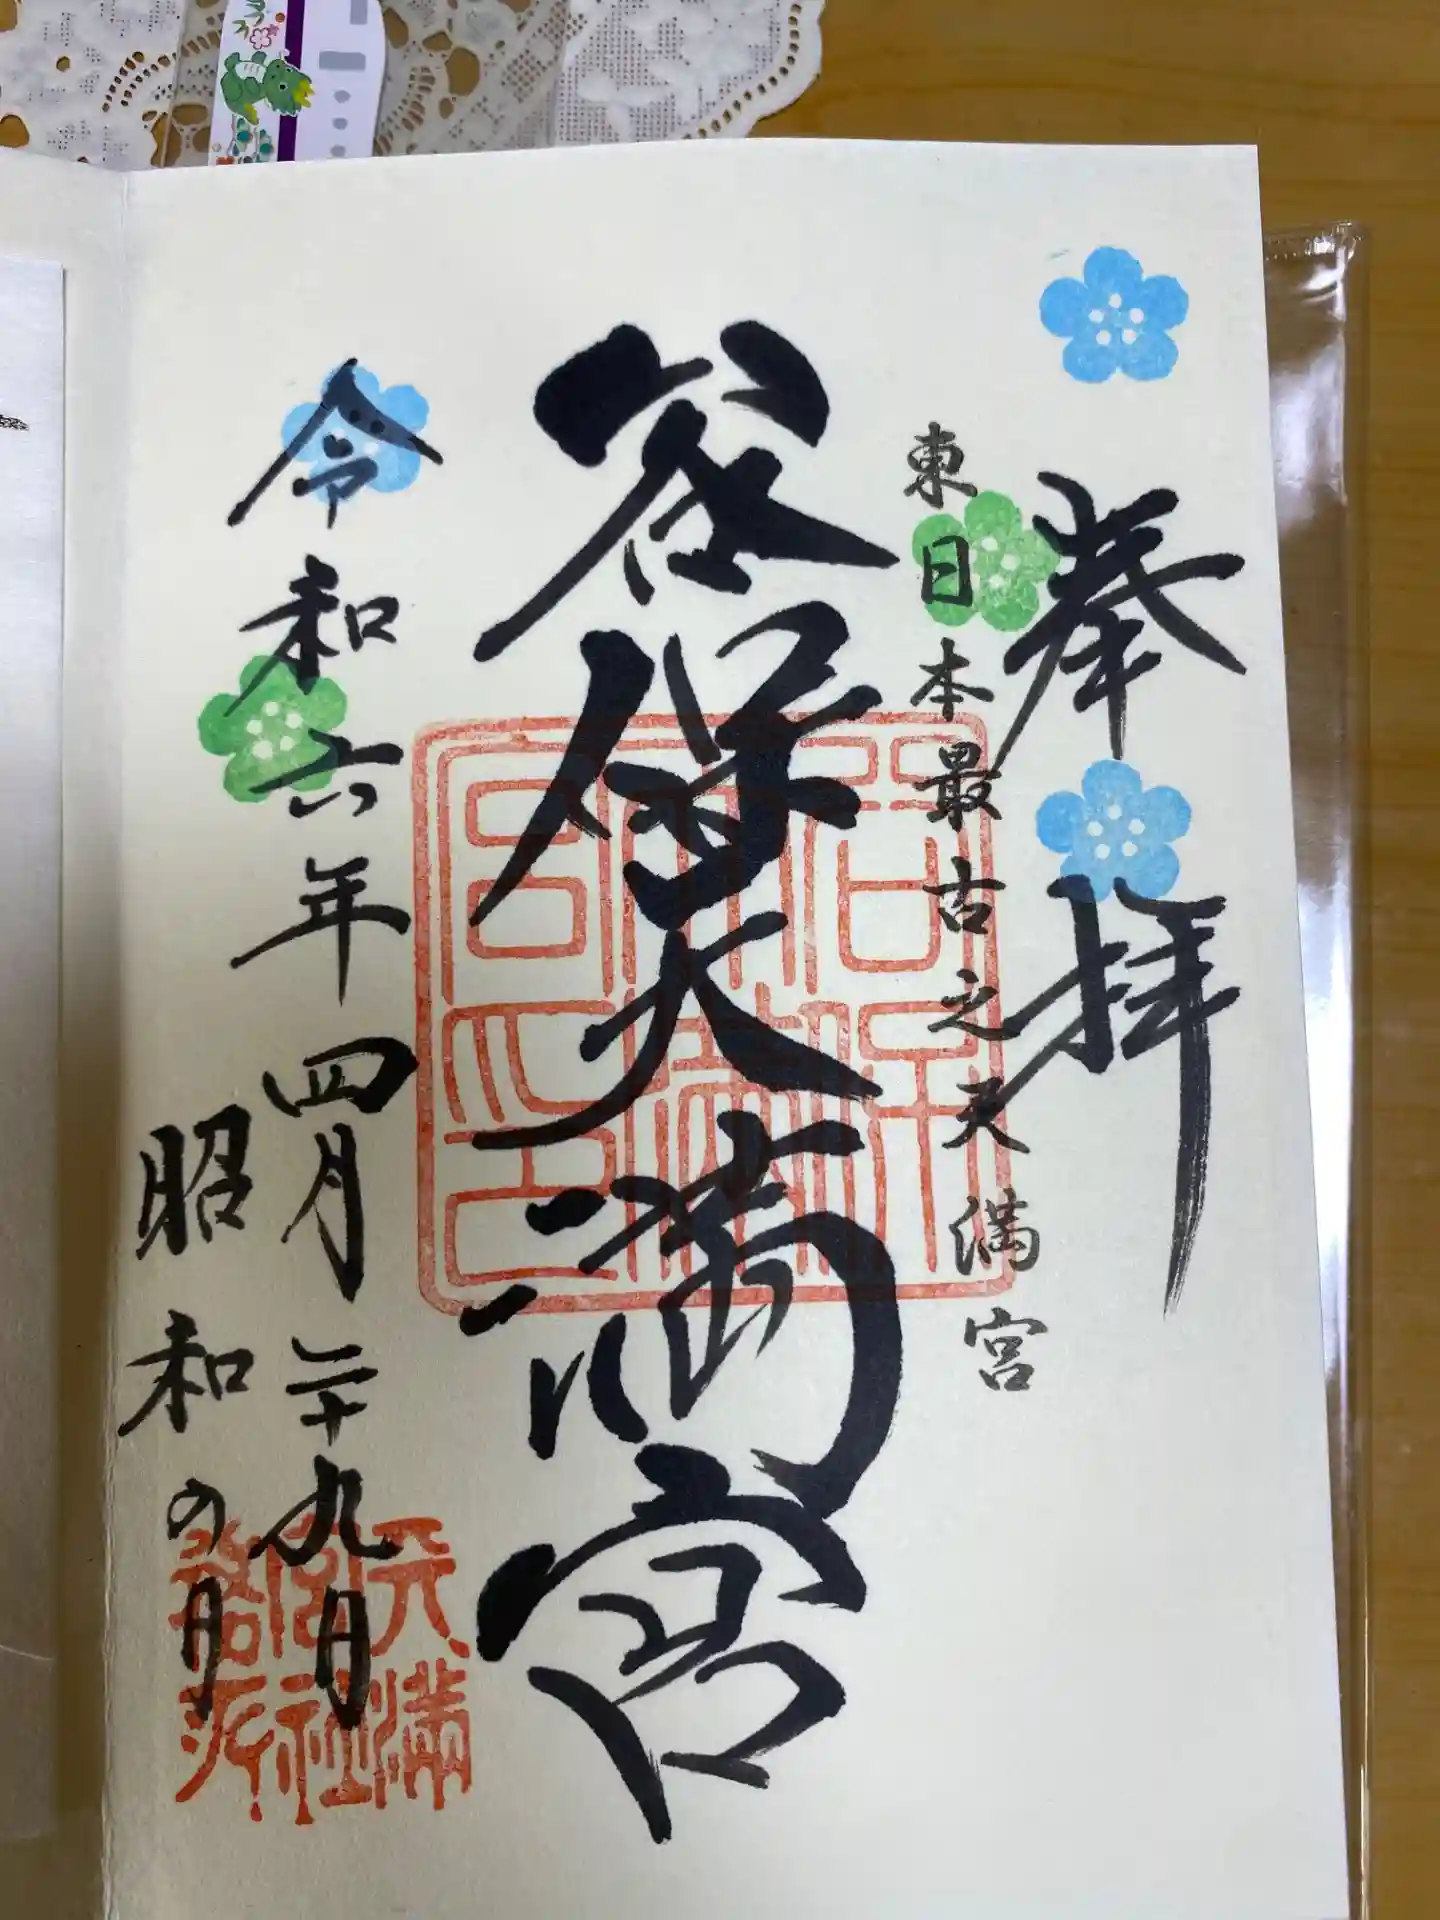 奉拝
東日本最古之天満宮
谷保天満宮
令和六年四月二十九日
昭和の日
谷保天満宮之印
天満宮社務所